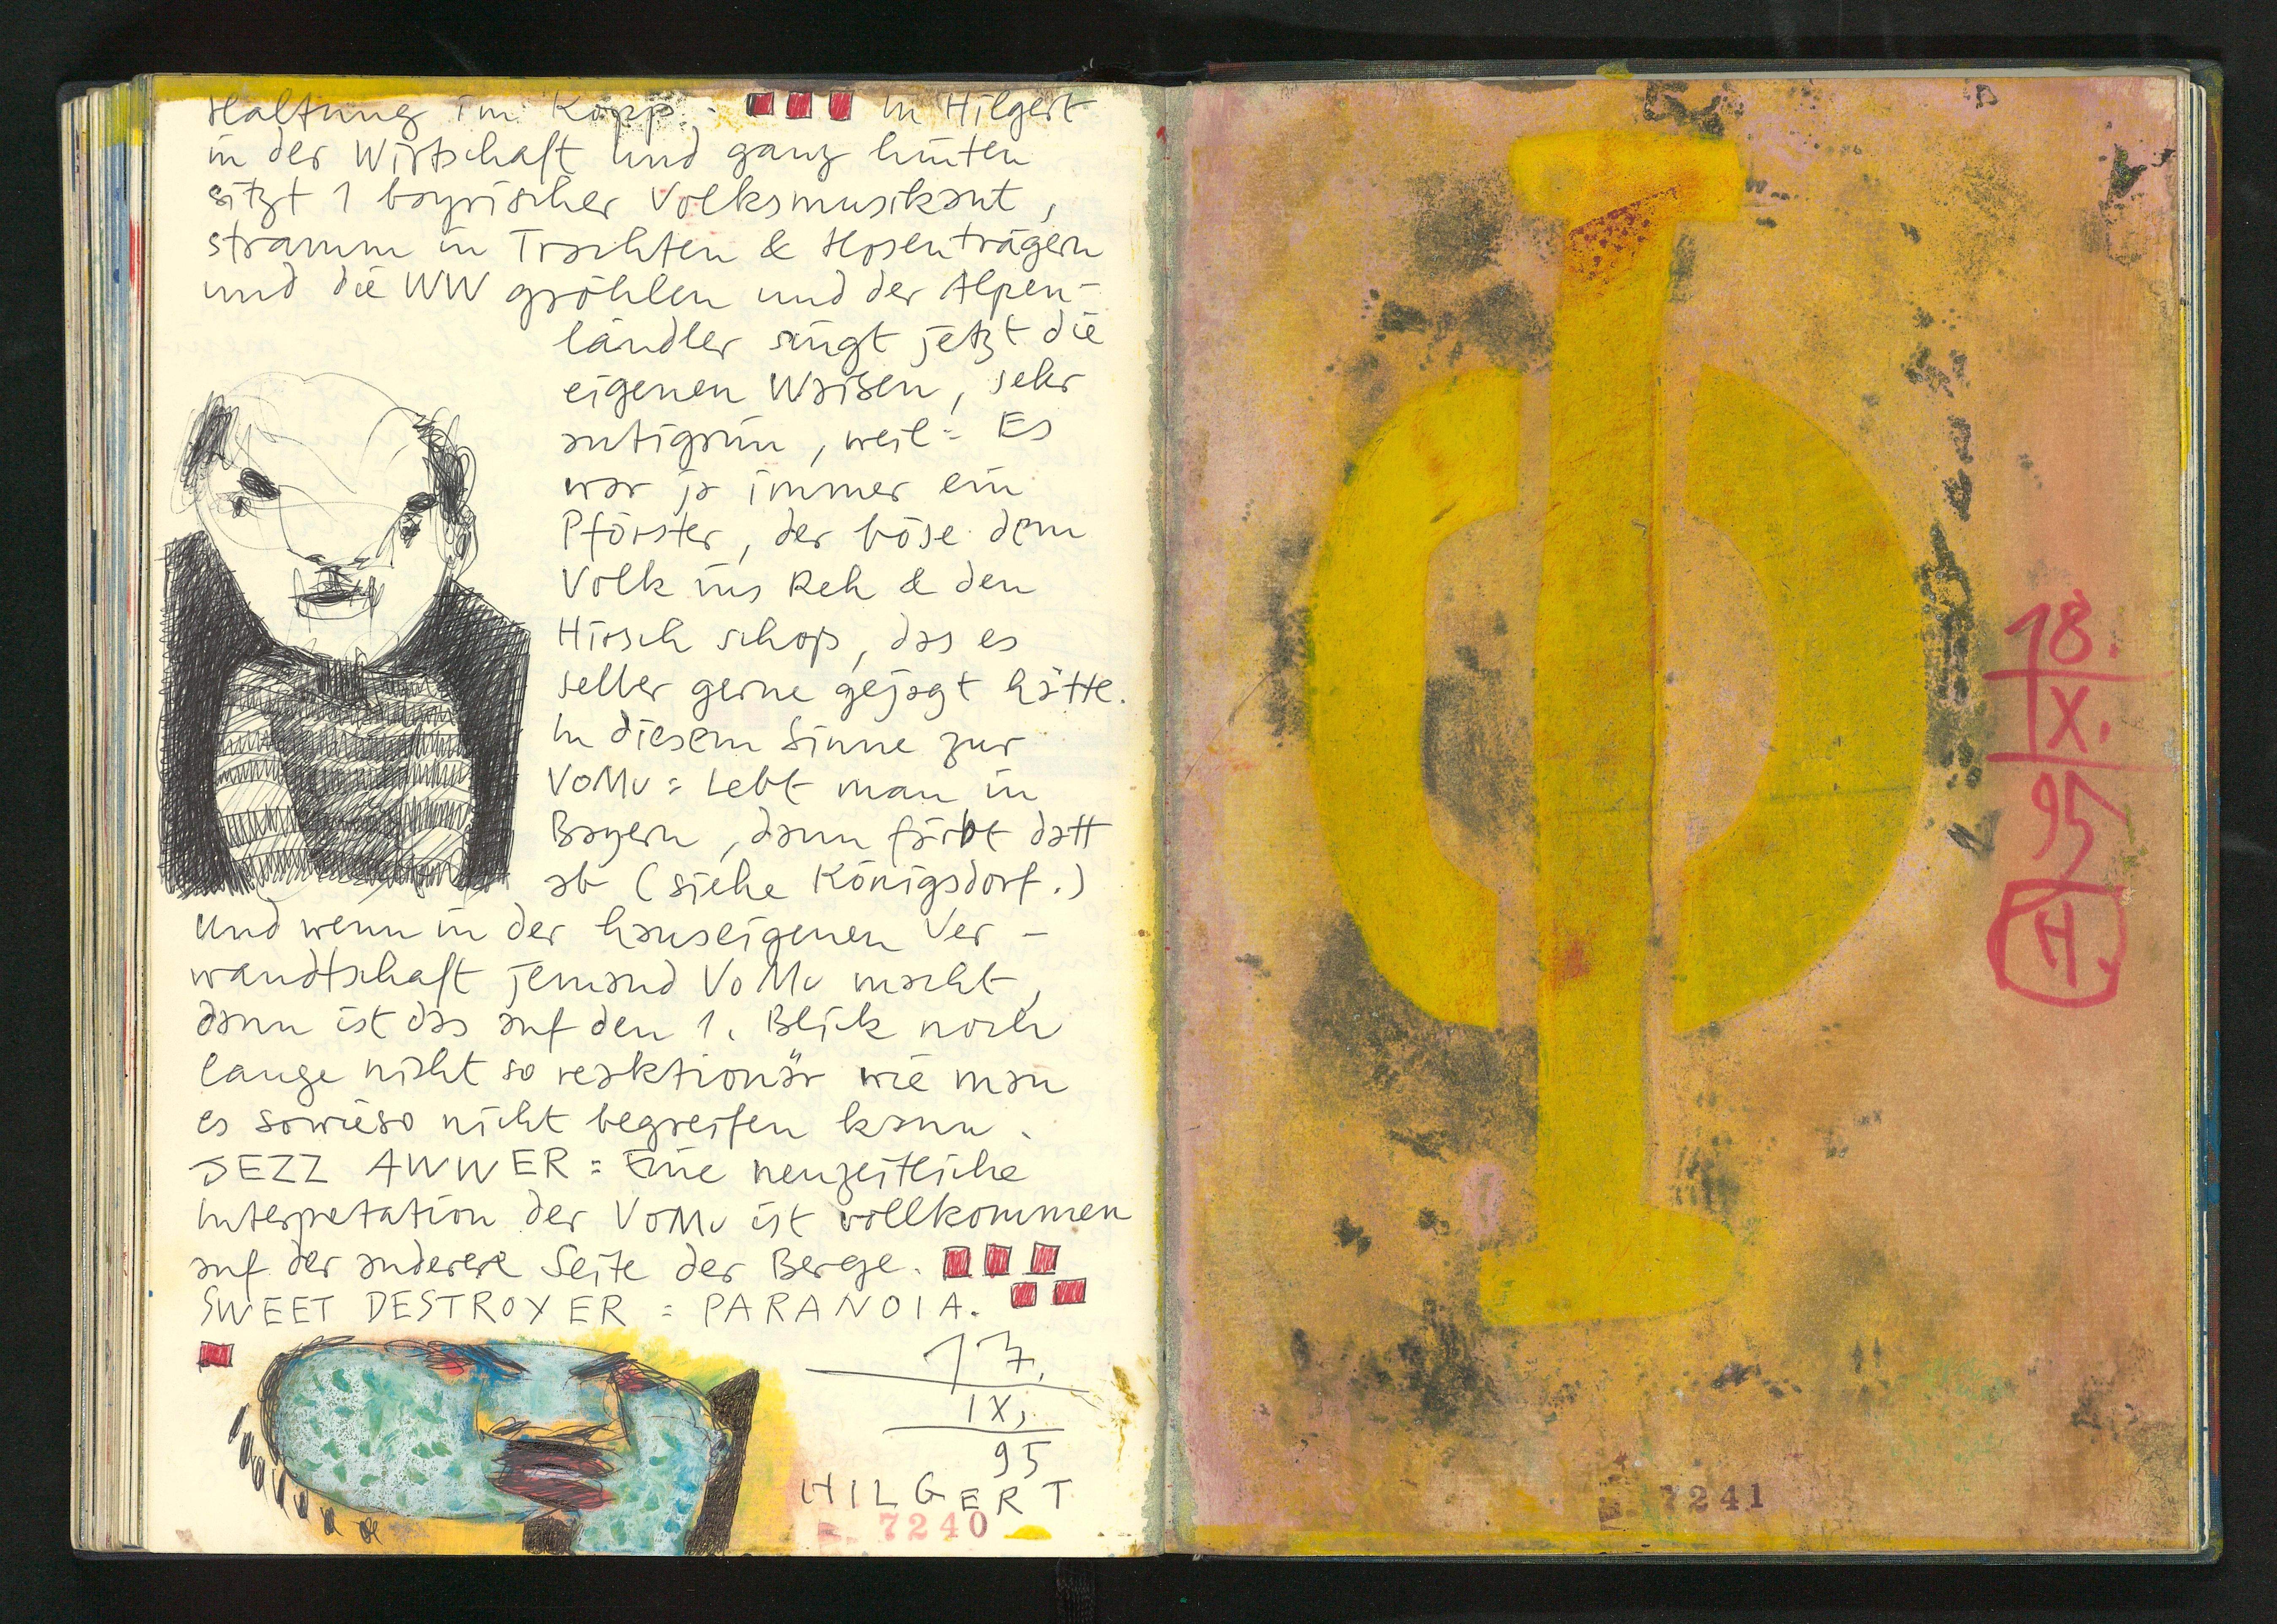 Haltung im Kopp. In Hilgert
in der Wirtschaft und ganz hinten
sitzt 1 bayrischer Volksmusikant,
stramm in Trachten & Hosenträgern
und die WW gröhlen und der Alpen-
ländler singt jetzt die
eigenen Waisen, sehr
antigrün, weil: Es
war ja immer ein
Pförster, der böse dem
Volk ins Reh & den
Hirsch schoß, das es
selber gerne gejagt hätte.
In diesem Sinne zur
VoMu: Lebt man in
Bayern, dann färbt datt
ab (siehe Königsdorf.)
Und wenn in der hauseigenen Ver-
wandtschaft jemand VoMu macht,
dann ist das auf den 1. Blick noch
lange nicht so reaktionär wie man
es sowieso nicht begreifen kann.
JEZZ AWWER: Eine neuzeitliche
Interpretation der VoMu ist vollkommen
auf der anderere Seite der Berge.
SWEET DESTROYER = PARANOIA.
17.
IX.
95
HILGERT
7240
18.
IX.
95
H.
7241